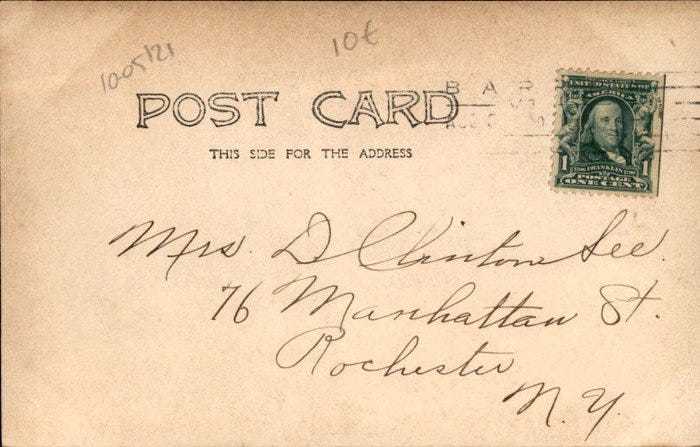 10-05121
10¢
POST CARD
BAR
THIS SIDE FOR THE ADDRESS
UNITED STATES OF
AMERICA
1
FRANKLIN
1
POSTAGE
ONE CENT
Mrs. D Clinton See.
76 Manhattan St.
Rochester
N.Y.